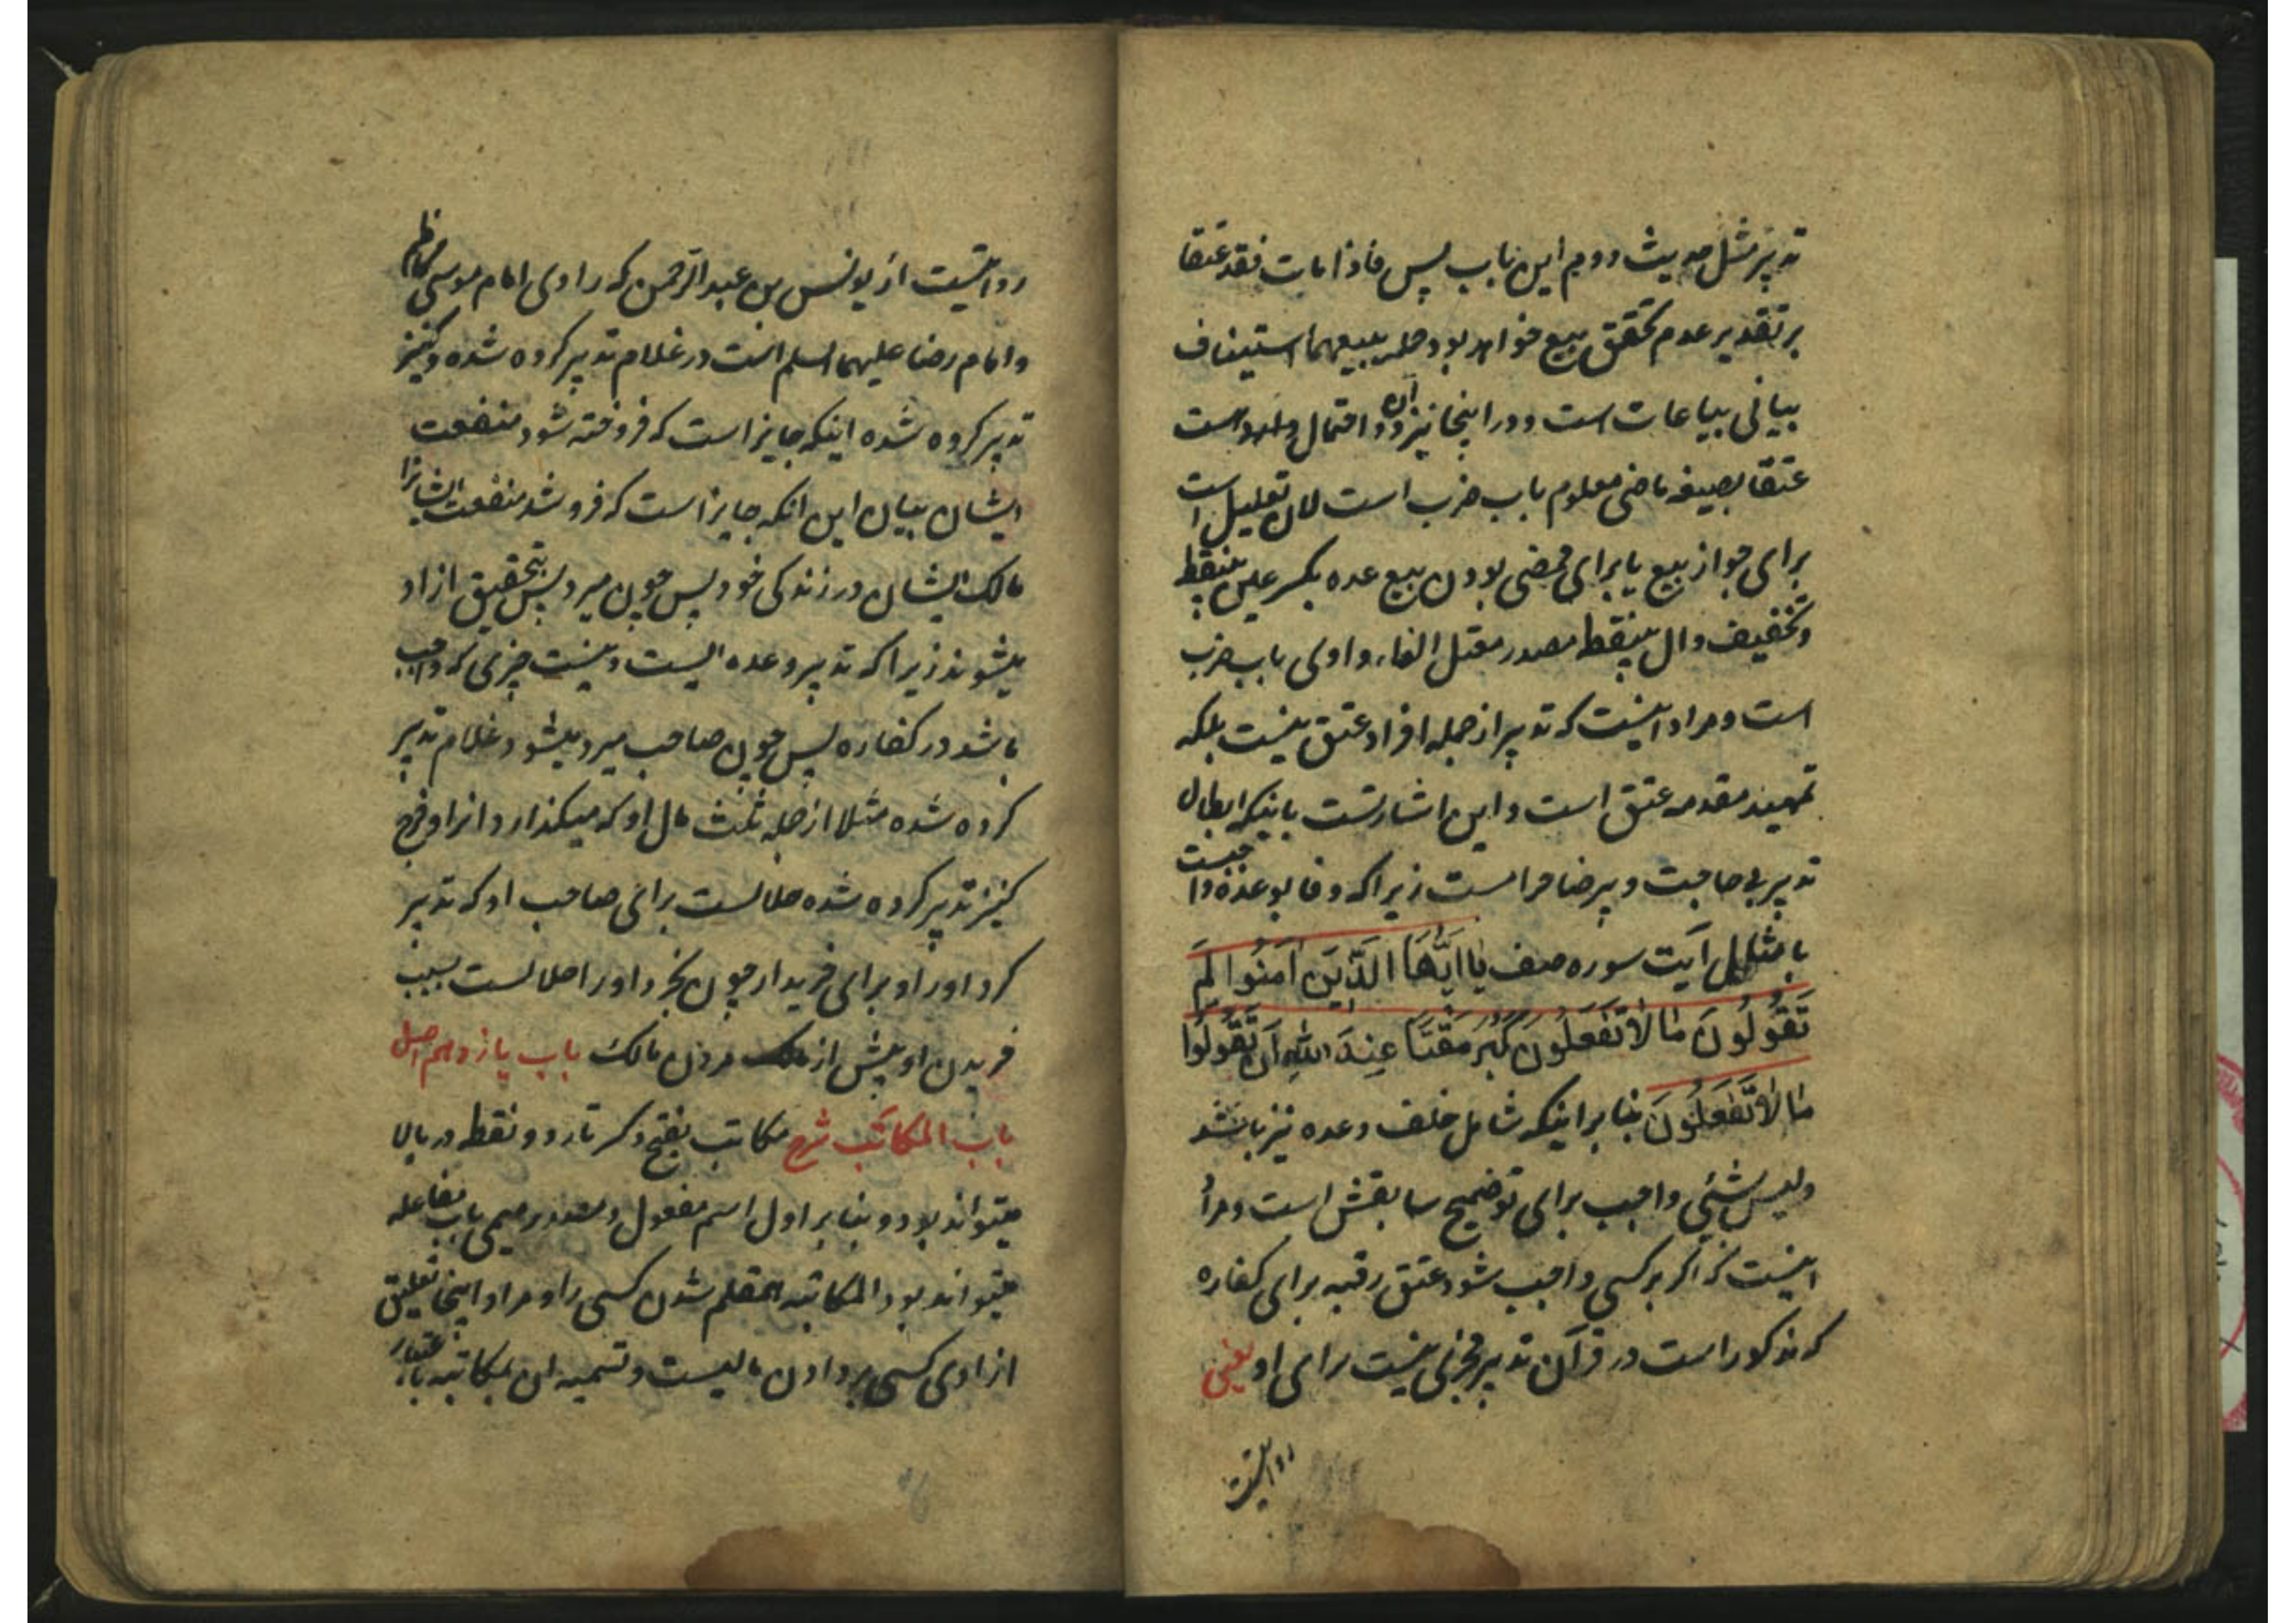 تدبیر مثل حدیث دوم این باب پس فاذا مات فقد عتقا
بر تقدیر عدم تحقق بیع خواهد بود جمله یبیعهما استیناف
بیانی بیاعات است و در اینجا نیز آن دو احتمال وارد است
عتقا بصیغه ماضی معلوم باب ضرب است لان تعلیل است
برای جواز بیع یا برای محضی بودن بیع عده بکسر عین بینقطه
و تخفیف دال بینقطه مصدر معتل الفاء واوی باب ضرب
است و مراد اینست که تدبیر از جمله افراد عتق نیست بلکه
تمهید مقدمه عتق است و این اشارتست باینکه ابطال
تدبیر بی حاجت و بیرضا حرامست زیرا که وفا بوعده واجبست
بامثل آیت سوره صف یَا اَیُّهَا الَّذِینَ اٰمَنُوا لِمَ
تَقُولُونَ مَا لَا تَفعَلُونَ کَبُرَ مَقْتًا عِندَ اللهِ اَن تَقُولُوا
مَا لَا تَفعَلُونَ بنا بر اینکه شامل خلف وعده نیز باشد
ولیس شئی واجب برای توضیح سابقش است و مراد
اینست که اگر بر کسی واجب شود عتق رقبه برای کفاره
که مذکور است در قرآن تدبیر مجزی نیست برای او یعنی
روایتست
روایتست از یونس بن عبد الرحمن که راوی امام موسی کاظم
و امام رضا علیهما السلم است در غلام تدبیر کرده شده و کنیز
تدبیر کرده شده اینکه جایز است که فروخته شود منفعت
ایشان بیان این آنکه جایز است که فروشد منفعت ایشانرا
مالک ایشان در زندگی خود پس چون میرد پس بتحقیق ازاد
میشوند زیرا که تدبیر وعده ایست و نیست چیزی که واجب
باشد در کفاره پس چون صاحب میرد میشود غلام تدبیر
کرده شده مثلا از جمله ثلث مال او که میگذارد انرا و فرج
کنیز تدبیر کرده شده حلالست برای صاحب او که تدبیر
کرد اورا و برای خریدار چون بخرد اورا حلالست بسبب
خریدن او پیش از مردن مالک باب یازدهم اصل
باب المکاتَب شرح مکاتب بفتح و کسر تاء دو نقطه در بالا
میتواند بود و بنا بر اول اسم مفعول و مصدر میمی باب مفاعله
میتواند بود المکاتبه همقلم شدن کسی را و مراد اینجا تعلیق
ازادی کسی بر دادن مالیست و تسمیه ان بمکاتبه باعتبار